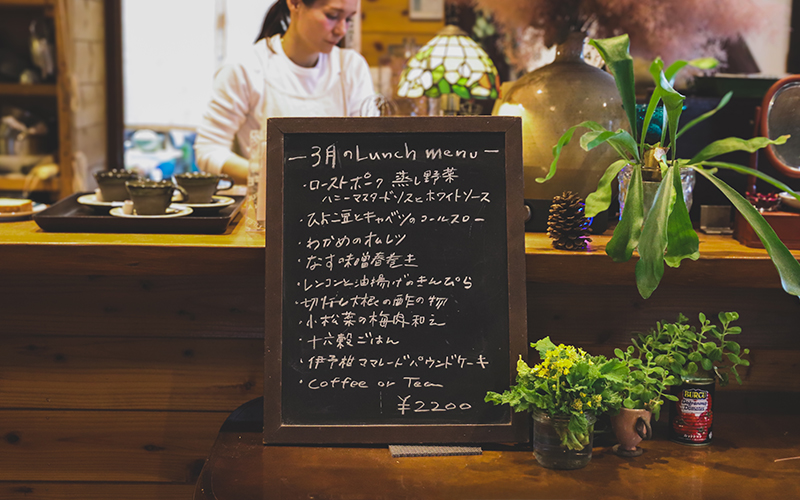 3月のLunch menu
・ローストポーク 蒸し野菜
ハニーマスタードソースとホワイトソース
・ひよこ豆とキャベツのコールスロー
・わかめのオムレツ
・なす味噌春巻き
・レンコンと油揚げのきんぴら
・切り干し大根の酢の物
・小松菜の梅肉和え
・十六穀ごはん
・伊予柑ママレードパウンドケーキ
・Coffee or Tea
¥2200